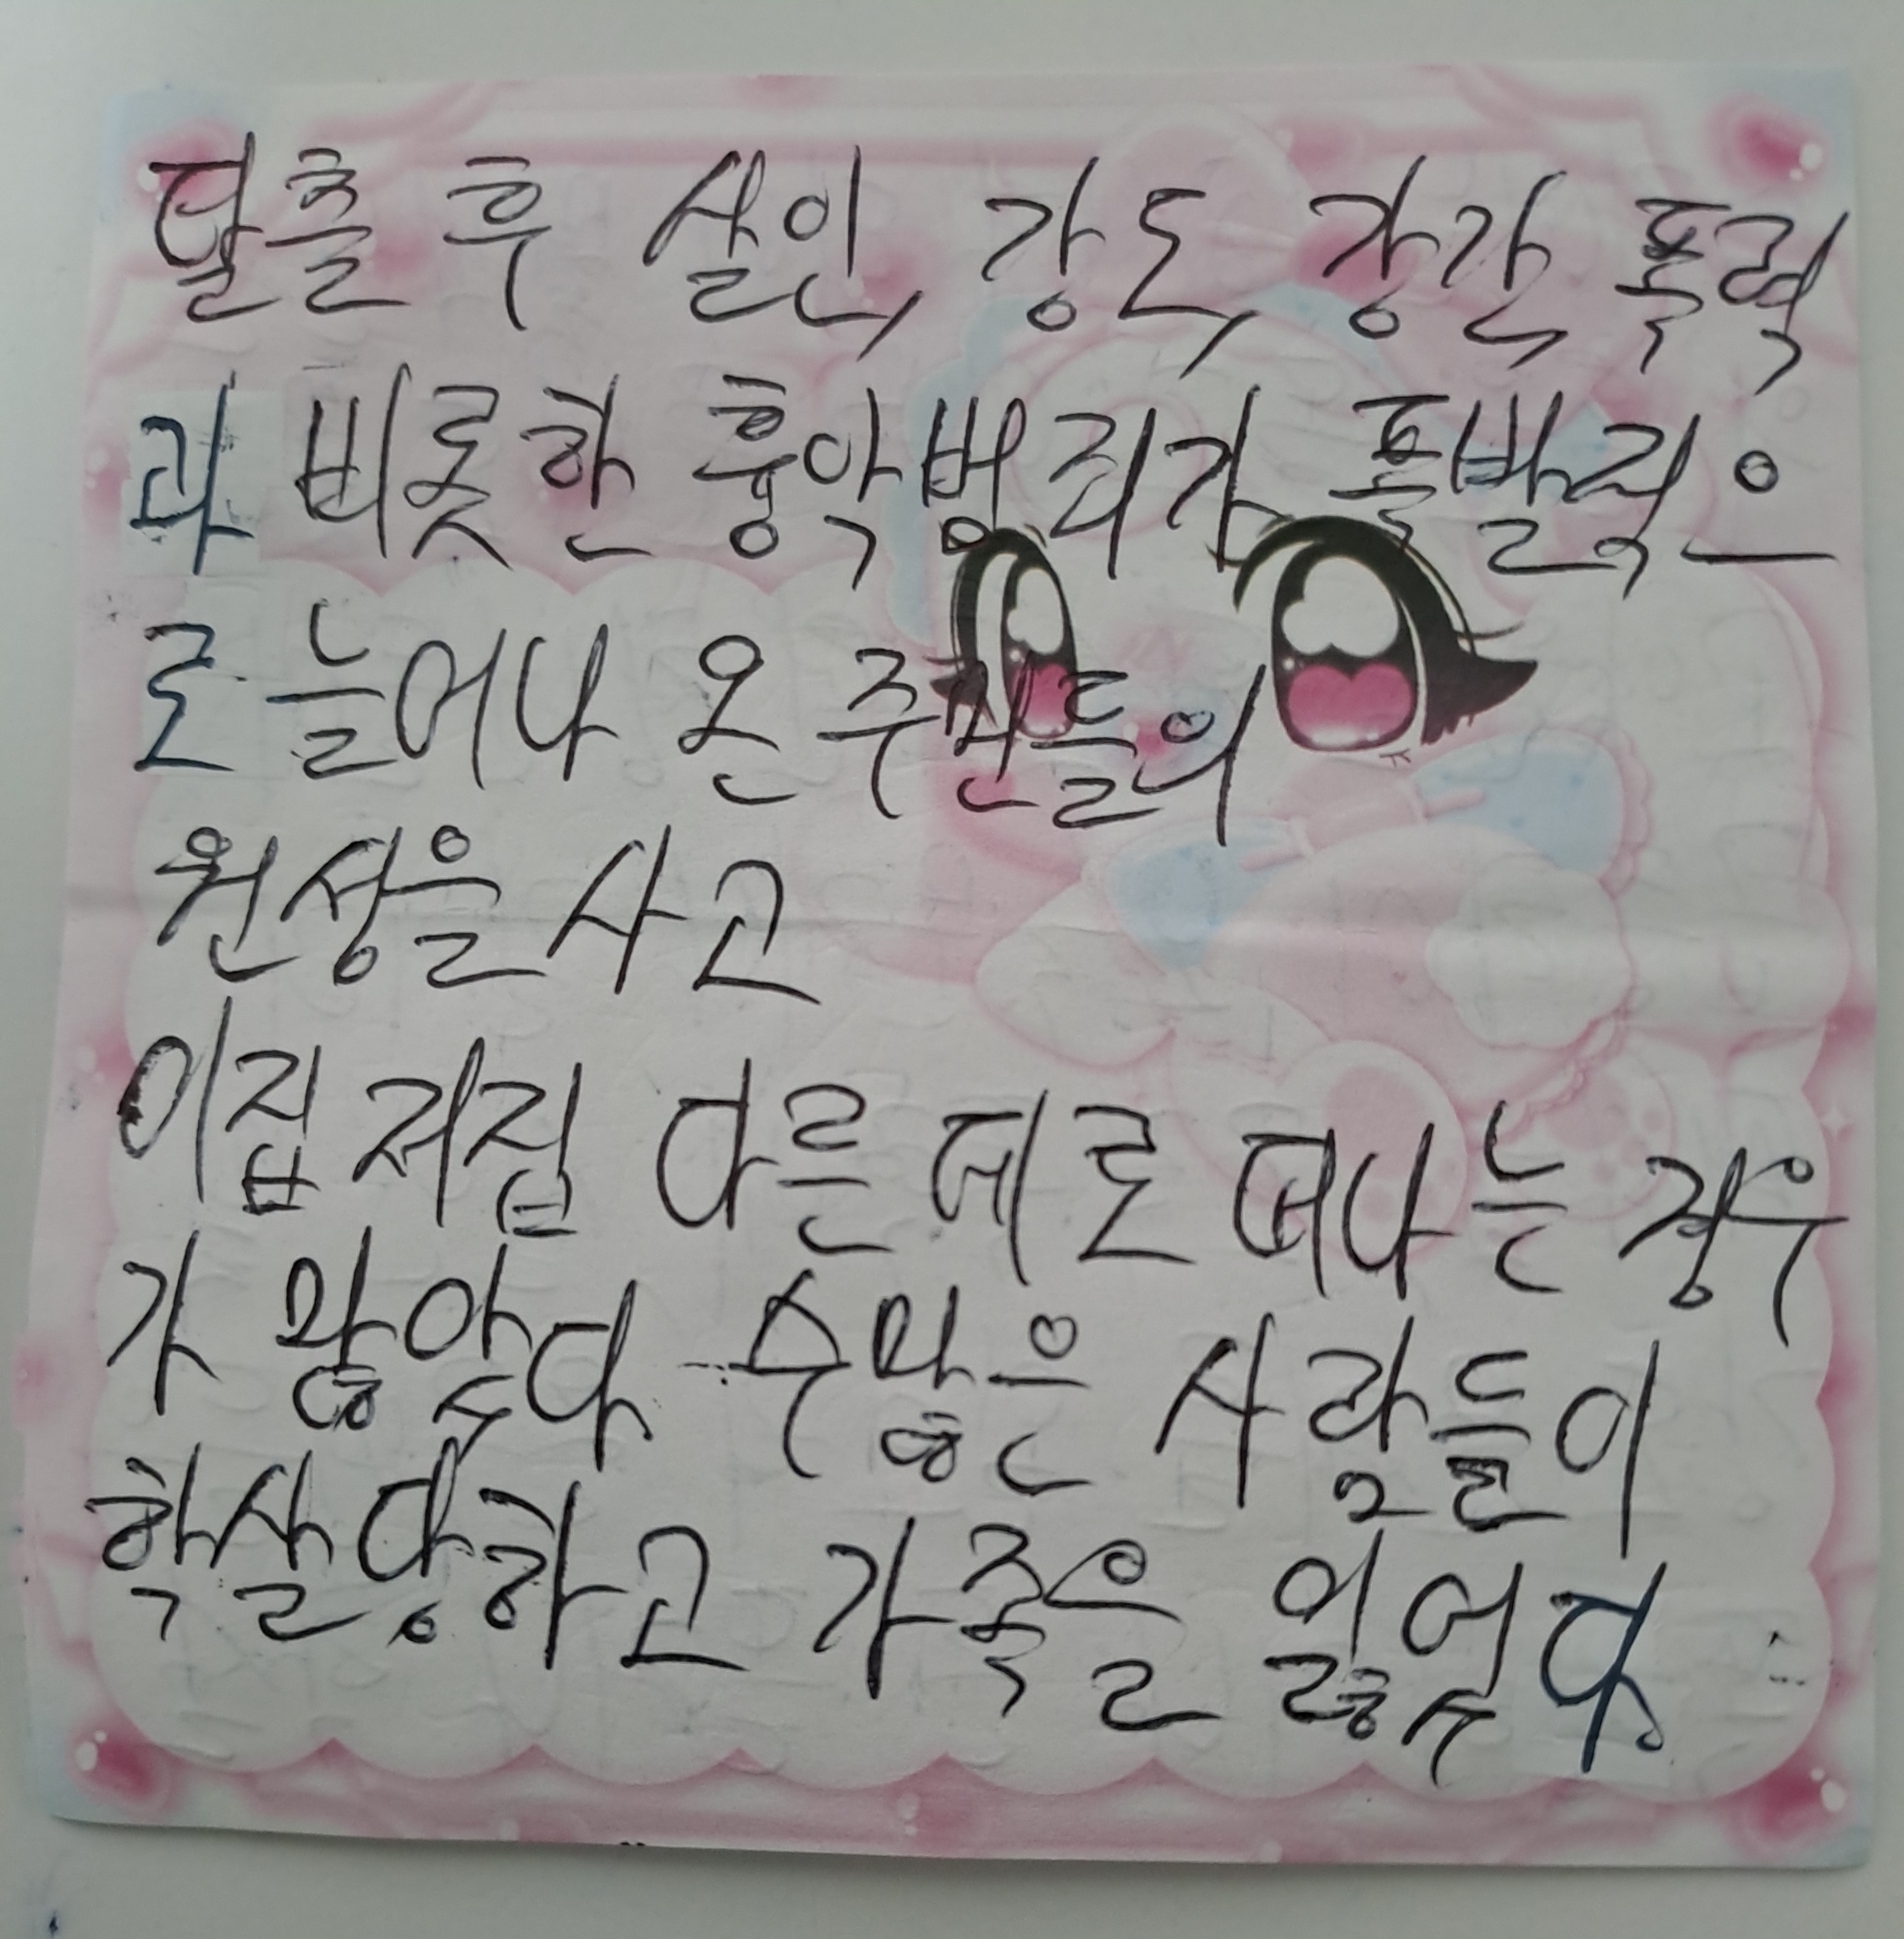 탈출 후 살인, 강도, 강간, 폭력
과 비롯한 흉악범죄가 폭발적으
로 늘어나 온 주민들의
원성을 사고
이집 저집 다른 데로 떠나는 경우
가 많았다 수많은 사람들이
학살당하고 가족을 잃었다.